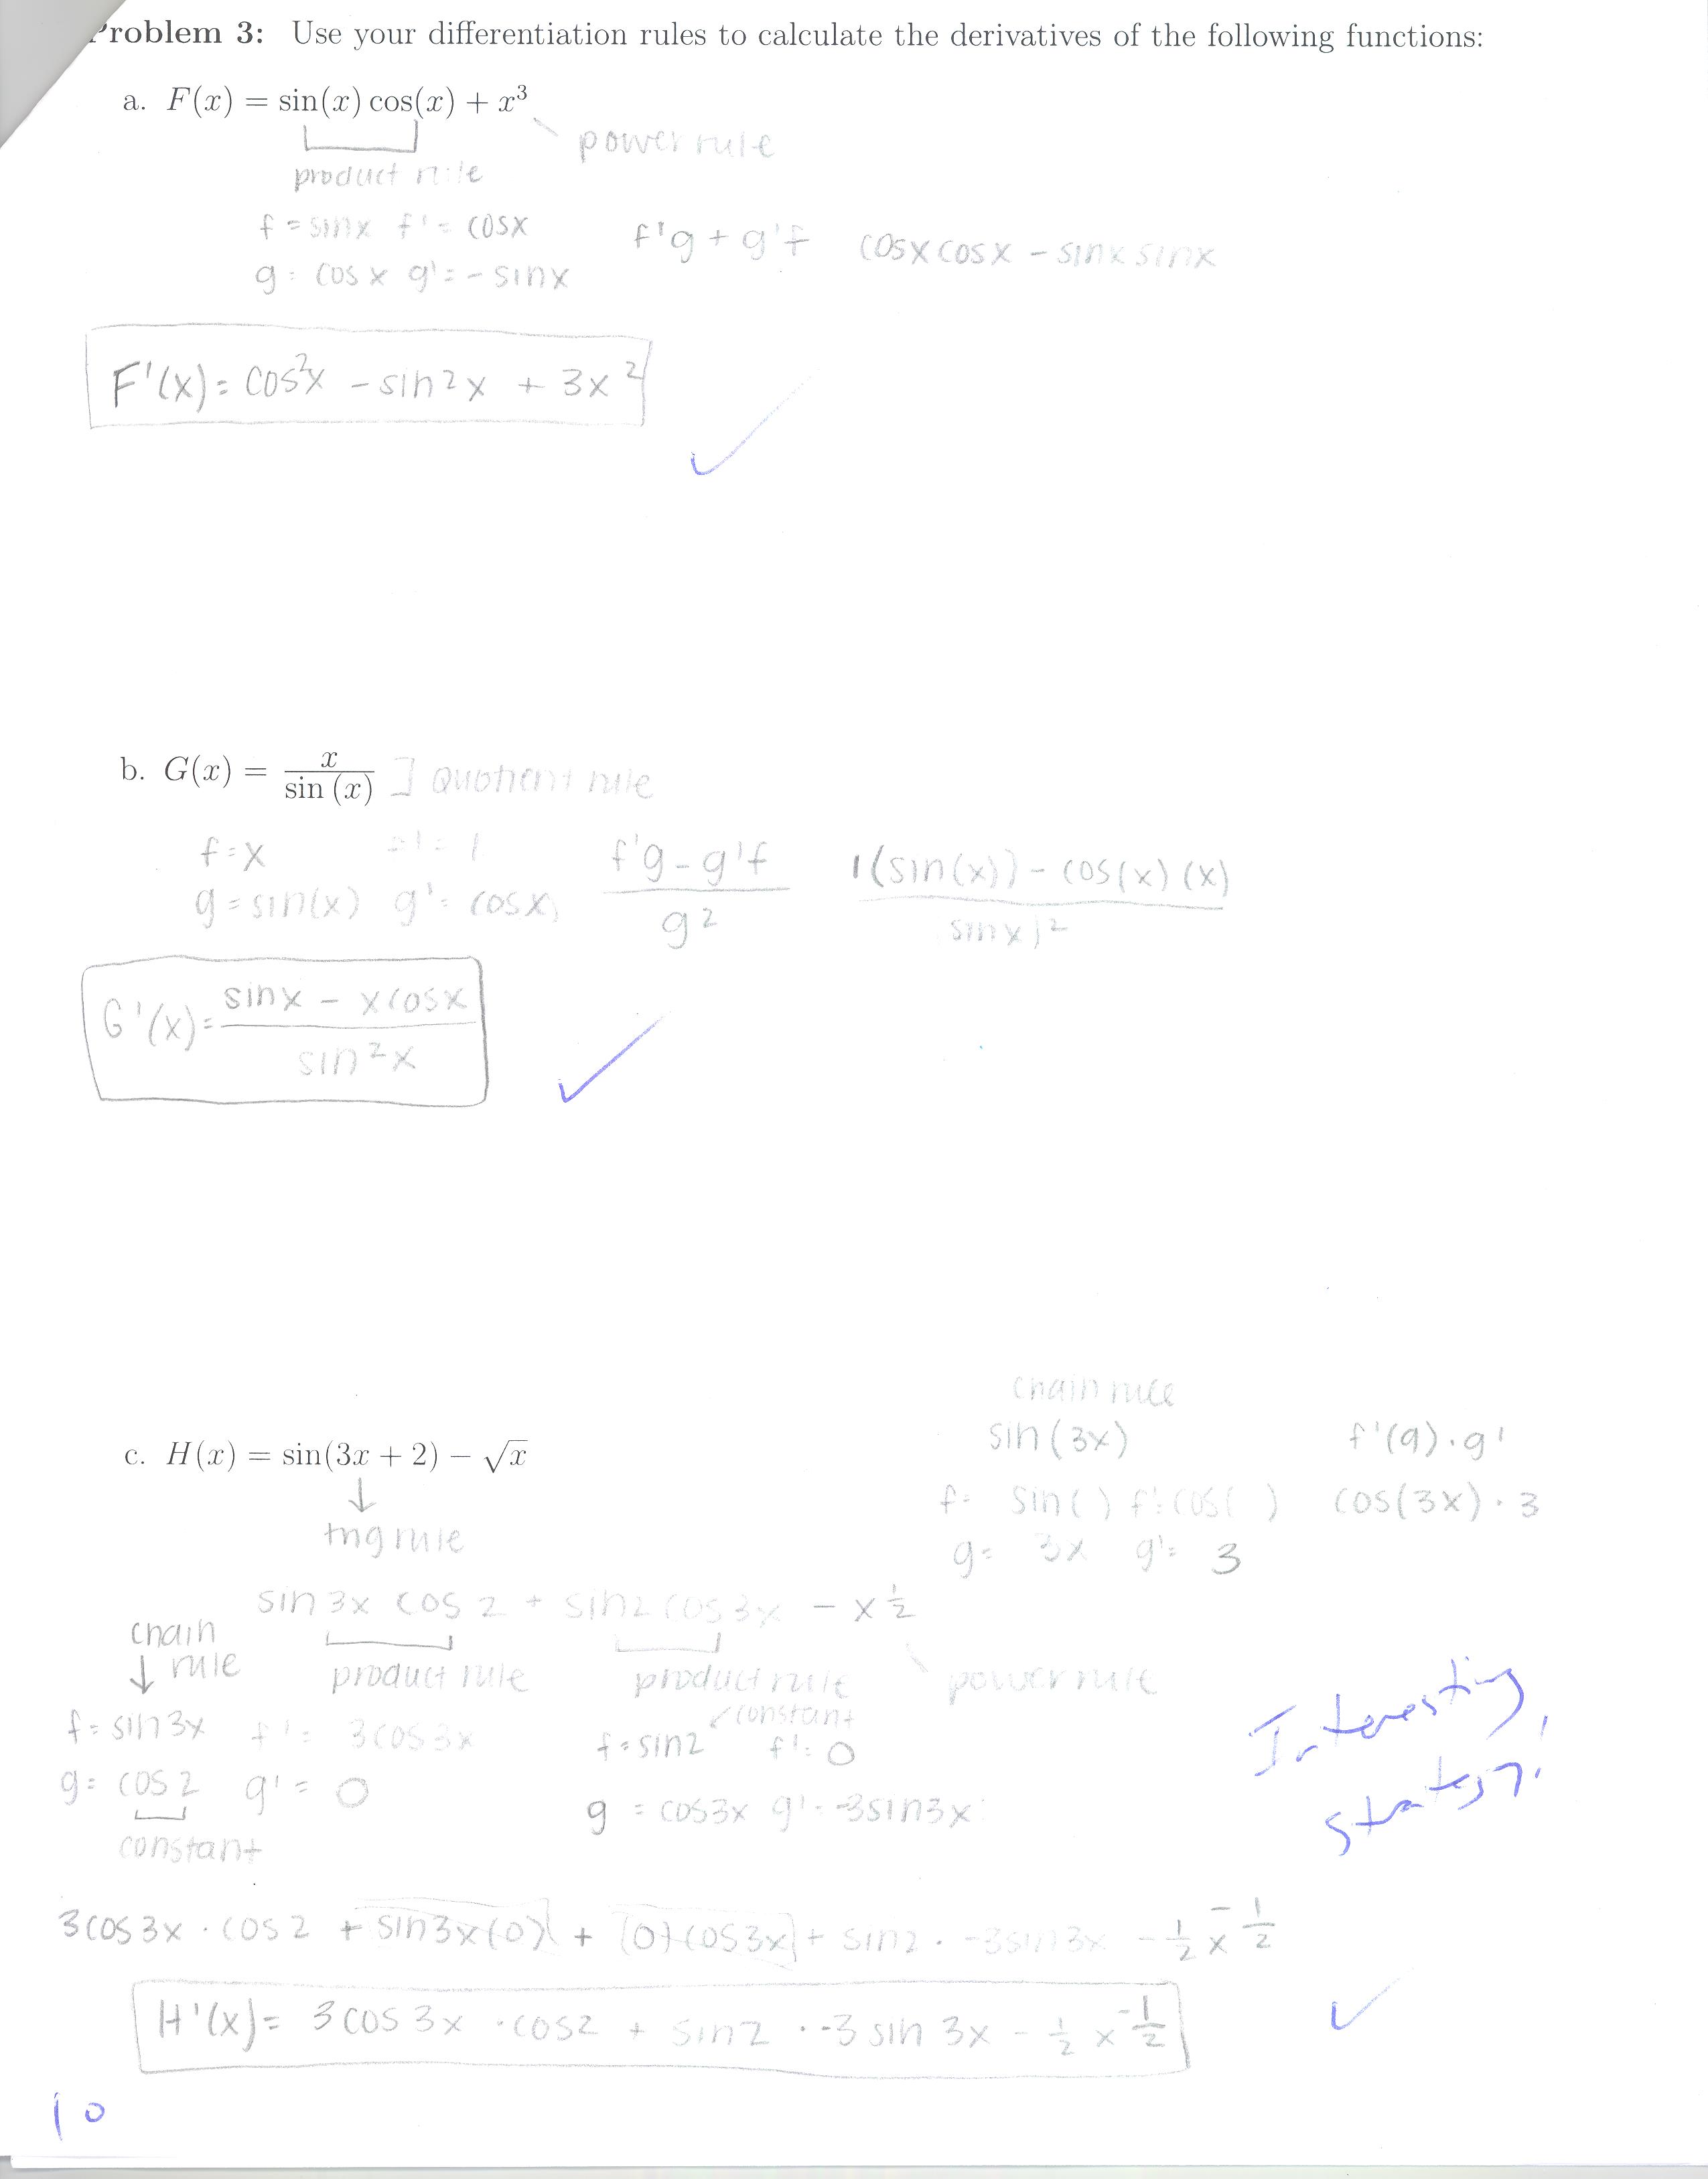 Problem 3: Use your differentiation rules to calculate the derivatives of the following functions:
a. F(x) = sin(x) cos(x) + x³
power rule
product rule
f = sinx f' = cosx
g = cosx g' = -sinx
f'g + g'f cosxcosx - sinxsinx
F'(x) = cos²x - sin²x + 3x²
✓
b. G(x) = x / sin (x) ] Quotient rule
f = x f' = 1
g = sin(x) g' = cos(x)
f'g - g'f / g² 1(sin(x)) - cos(x) (x) / sinx)²
G'(x) = sinx - xcosx / sin²x
✓
chain rule
sin(3x) f'(g)·g'
f = sin( ) f' = cos( ) cos(3x)·3
g = 3x g' = 3
c. H(x) = sin(3x + 2) − √x
↓
trig rule
sin3x cos2 + sin2 cos3x - x^1/2
chain
↓ rule
product rule product rule power rule
f = sin3x f' = 3cos3x
g = cos2 g' = 0
constant
constant
f = sin2 f' = 0
g = cos3x g' = -3sin3x
Interesting
strategy!
3cos3x · cos2 + sin3x(0) + (0)(cos3x) + sin2 · -3sin3x - 1/2 x^-1/2
H'(x) = 3cos3x · cos2 + sin2 · -3sin3x - 1/2 x^-1/2
✓
10